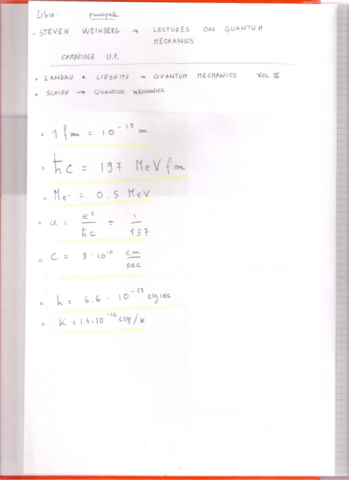 Libro: principale
• STEVEN WEINBERG → LECTURES ON QUANTUM
MECHANICS
CAMBRIDGE U.P.
• LANDAU & LIFSHITZ → QUANTUM MECHANICS VOL III
• SCHIFF → QUANTUM MECHANICS
• 1 fm = 10⁻¹³ cm
• ħc = 197 MeV fm
• Me⁻ = 0.5 MeV
• α = e²/ħc = 1/137
• C = 3·10¹⁰ cm/sec
• h = 6.6 · 10⁻²⁷ erg sec
• K = 1.4·10⁻¹⁶ erg/K